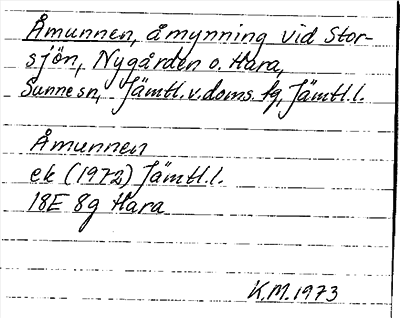 Åmunnen, åmynning vid Stor-
sjön, Nygården o. Hara,
Sunnesn, Jämtl.v.doms.fg, Jämtl.l.
Åmunnen
ek (1972) Jämtl.l.
18E 8g Hara
K.M.1973